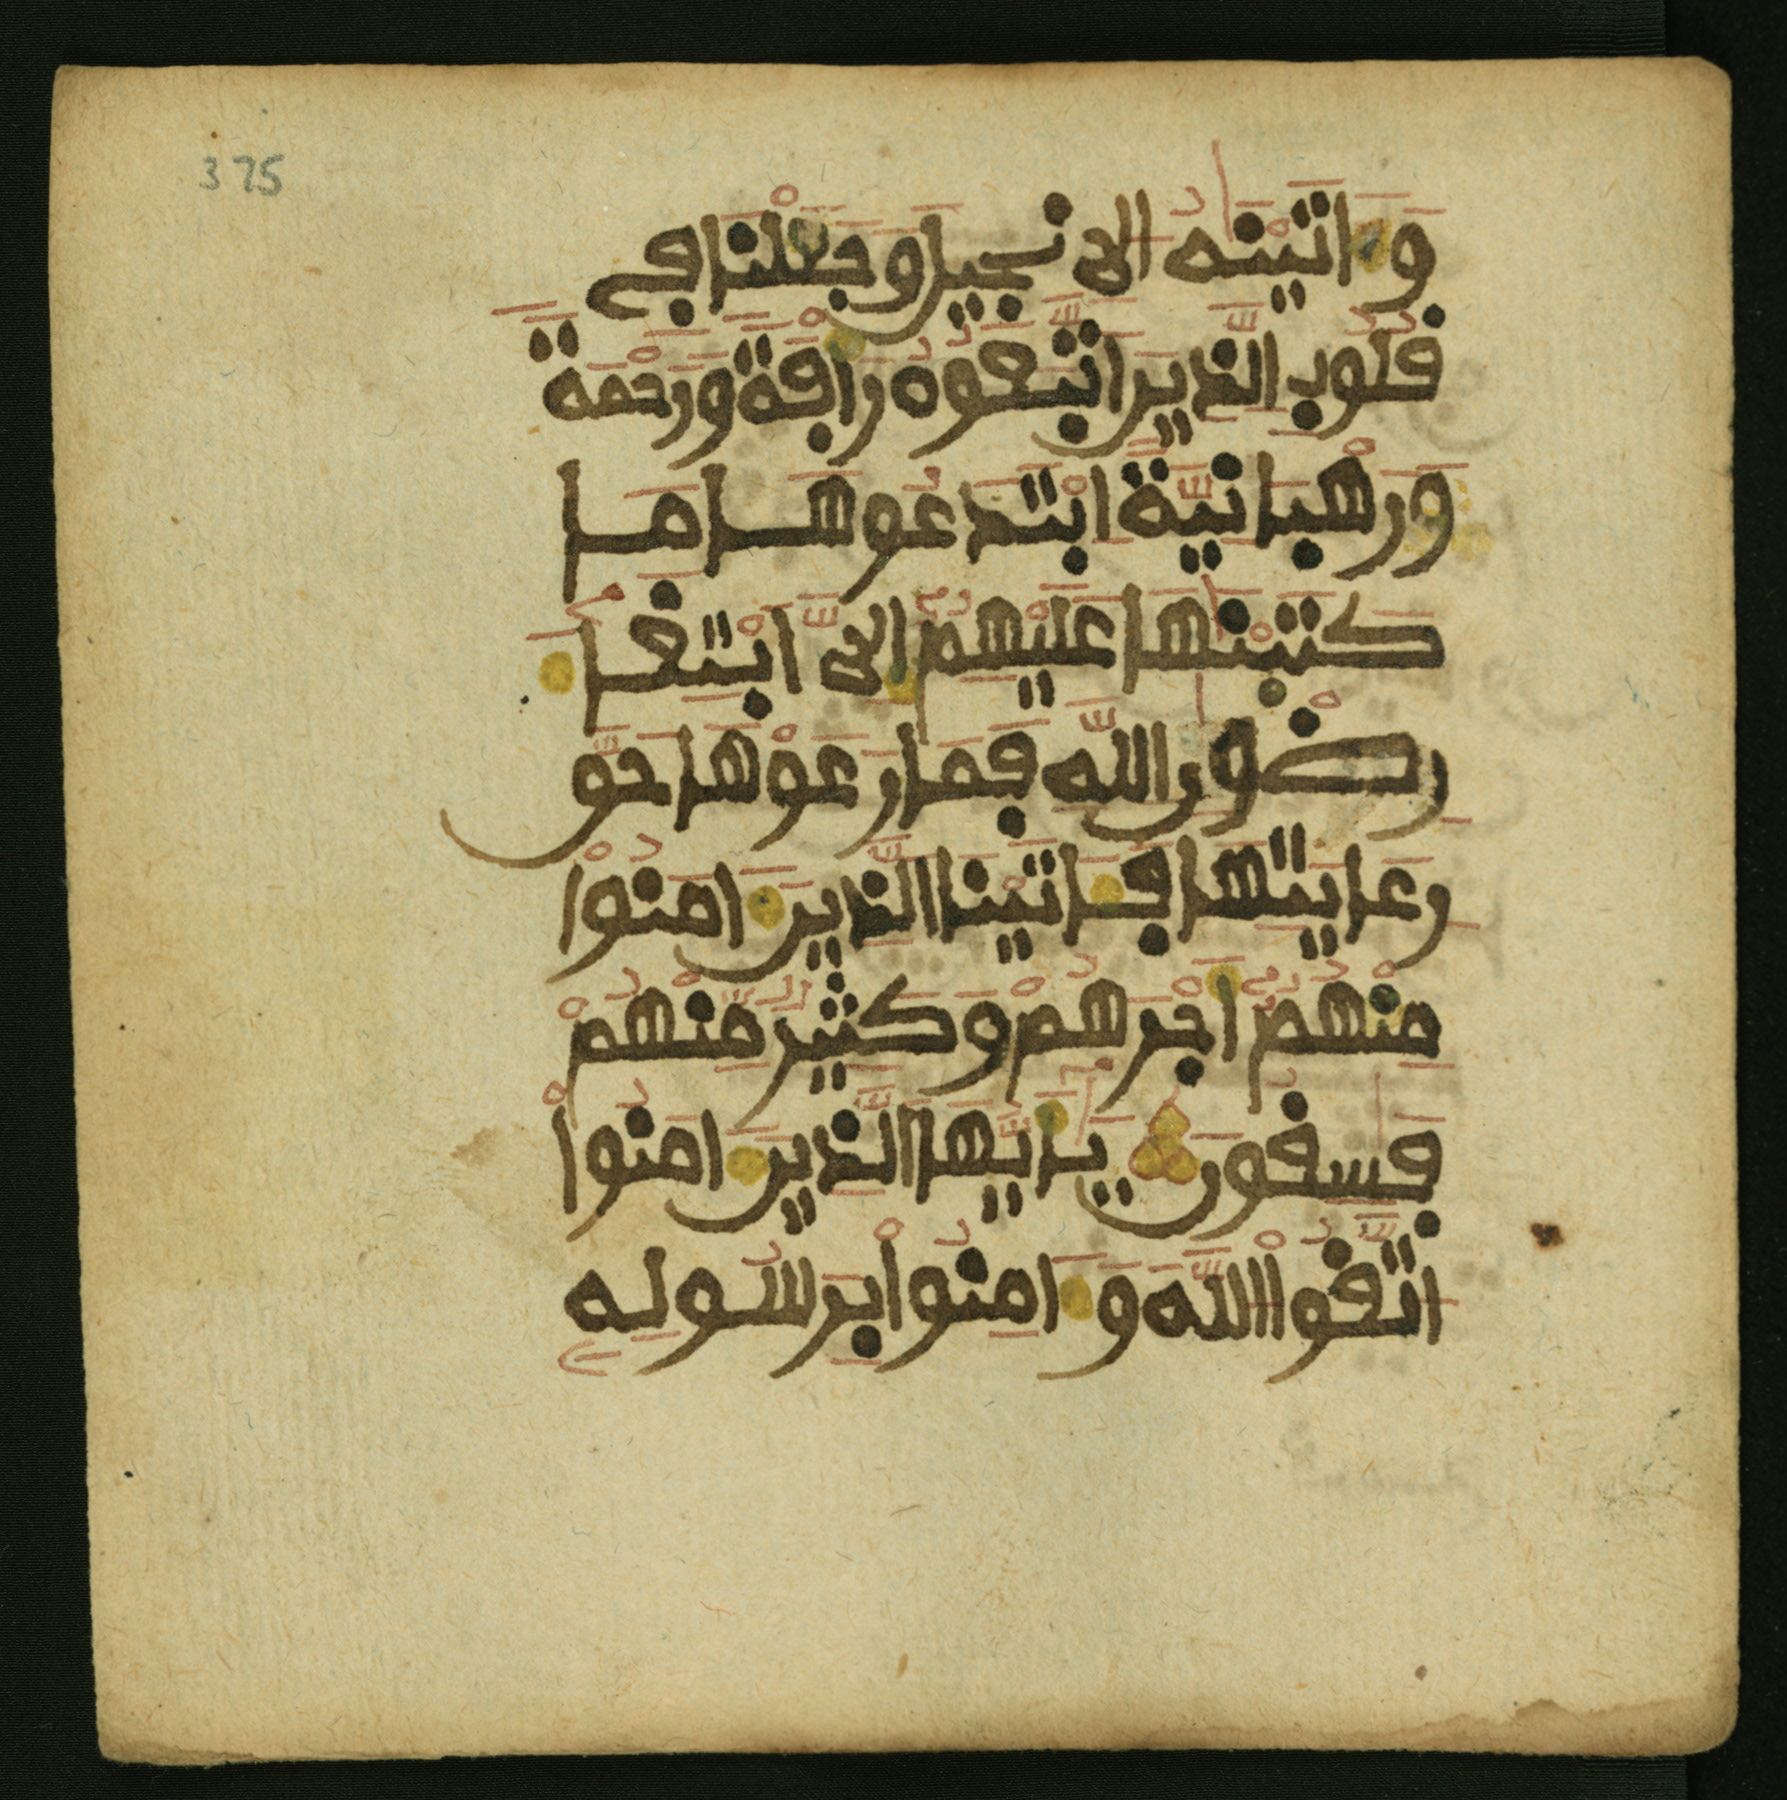 375
وَءَاتَيْنَٰهُ الاِنجِيلَ وَجَعَلْنَا فِے
قُلُوبِ الَّذِينَ اَتَّبَعُوهُ رَأْفَةً وَرَحْمَةً
وَرَهْبَانِيَّةً اِبْتَدَعُوهَا مَا
كَتَبْنَٰهَا عَلَيْهِمُۥٓ إِلَّا اَبْتِغَآءَ
رِضْوَٰنِ اِللَّهِ فَمَا رَعَوْهَا حَقَّ
رِعَايَتِهَا فَـَٔاتَيْنَا الَّذِينَ ءَامَنُواْ
مِنْهُمُۥٓ أَجْرَهُمْ وَكَثِيرٌ مِّنْهُمْ
فَٰسِقُونَ يَٰٓأَيُّهَا الَّذِينَ ءَامَنُواْ
اتَّقُواْ اللَّهَ وَءَامِنُواْ بِرَسُولِهِۦ